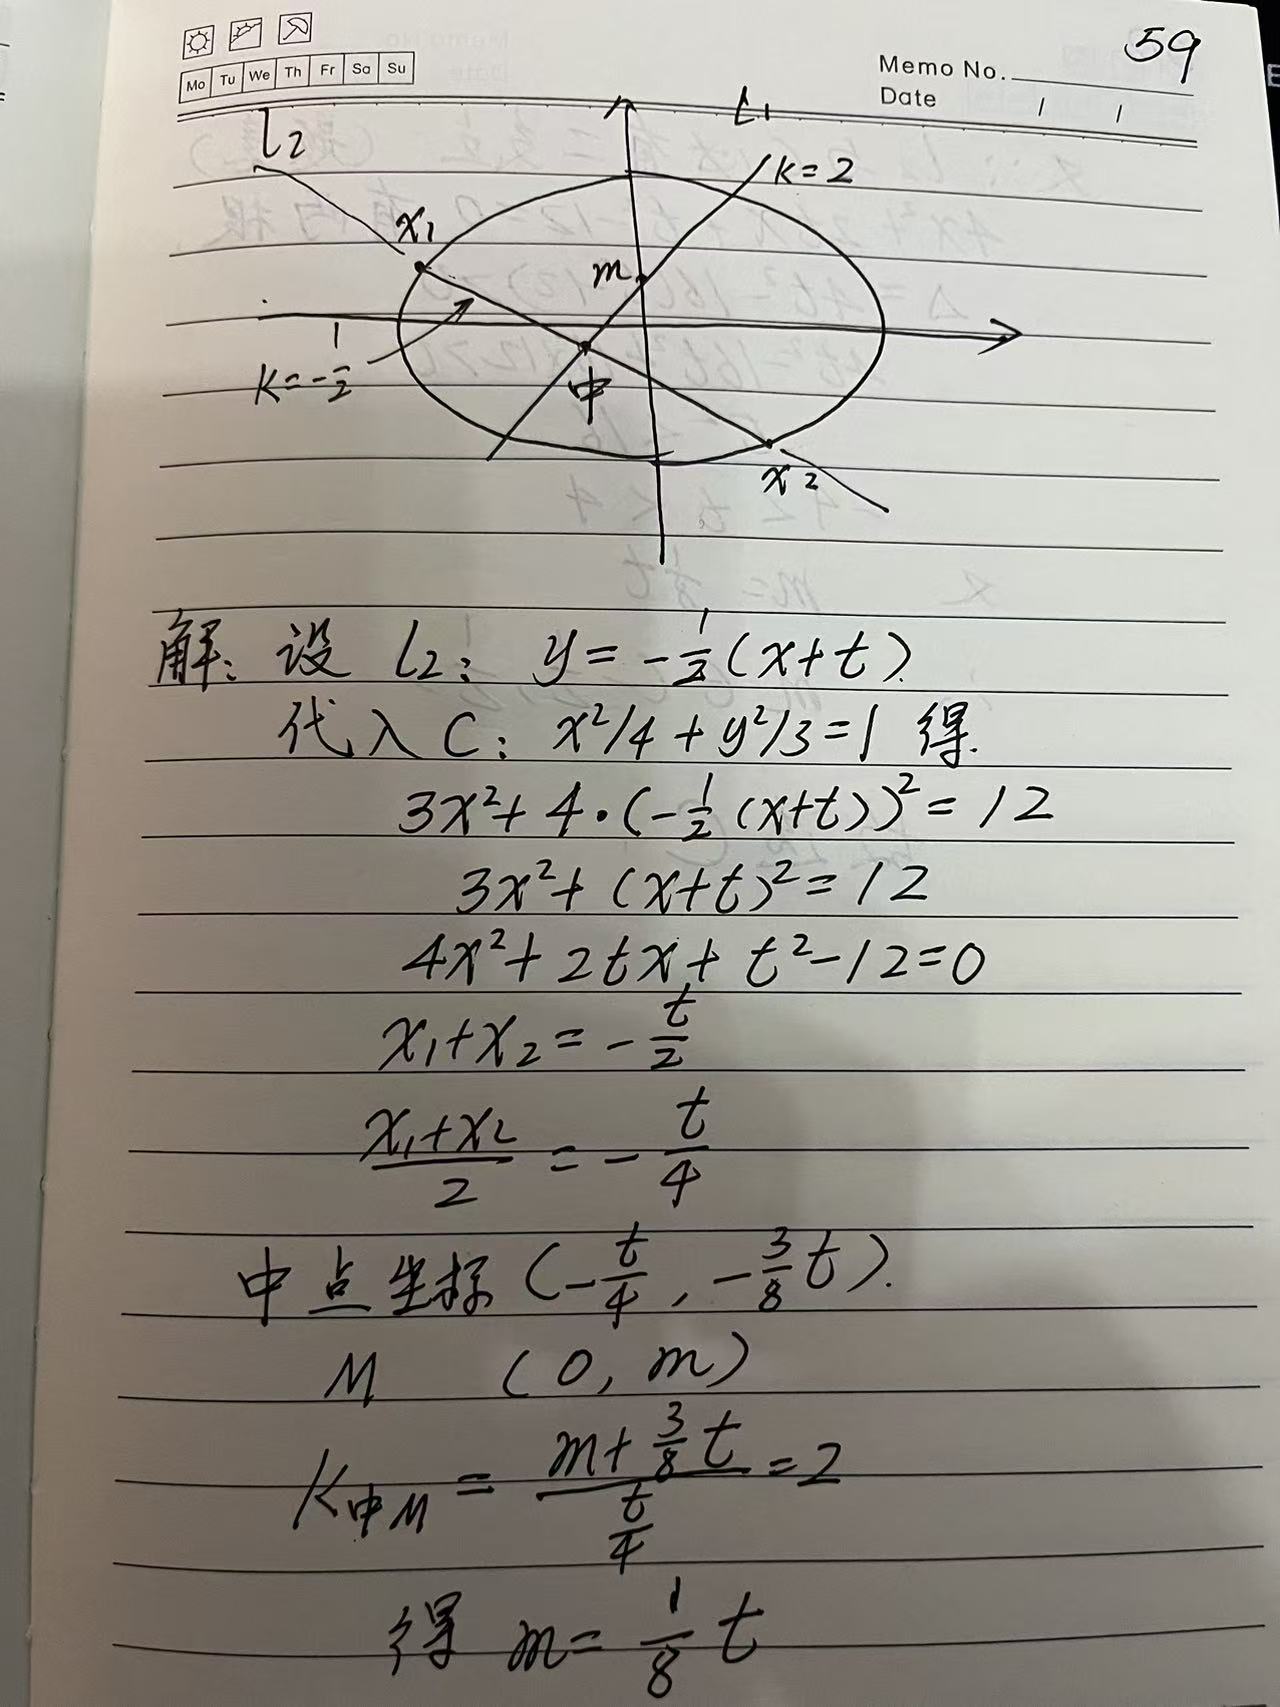 59
Mo Tu We Th Fr Sa Su
Memo No.
Date / /
l₂
L₁
k=2
x₁
m
k=-1/2
中
x₂
解: 设 l₂: y=-1/2(x+t)
代入 C: x²/4+y²/3=1 得.
3x²+4·(-1/2(x+t))²=12
3x²+(x+t)²=12
4x²+2tx+t²-12=0
x₁+x₂=-t/2
(x₁+x₂)/2=-t/4
中点坐标(-t/4, -3/8t).
M (0, m)
K中M=(m+3/8t)/(t/4)=2
得 m=1/8t